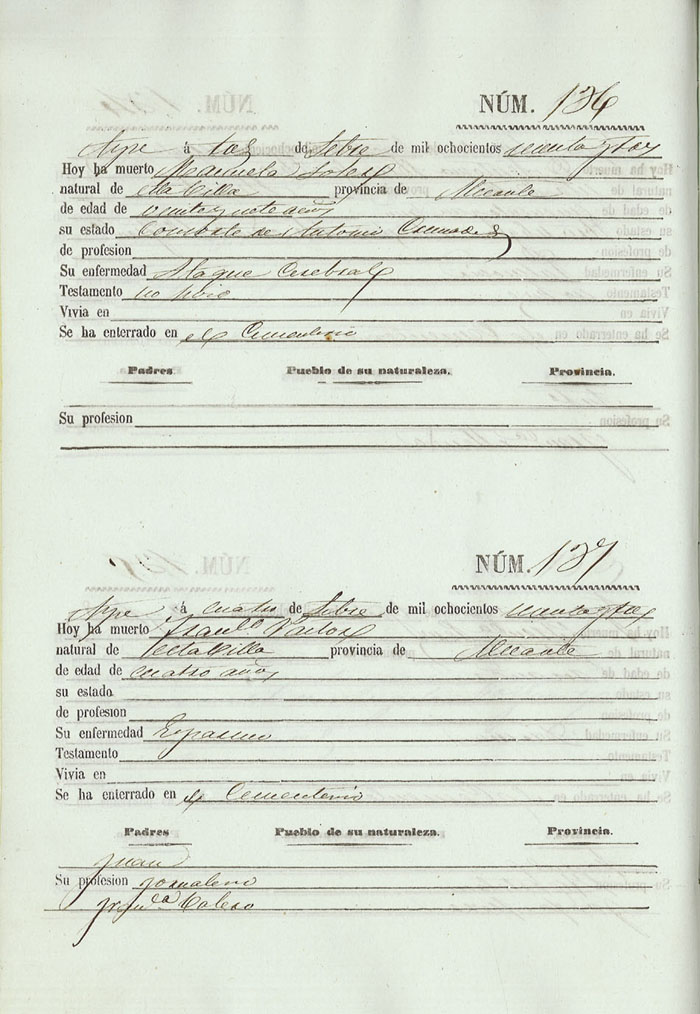 NÚM. 136
Aspe á tres de Sebre de mil ochocientos
Hoy ha muerto Manuela
natural de esta Villa provincia de Alicante
de edad de veinte y siete años
su estado Consorte de Antonio
de profesion
Su enfermedad Ataque Cerebral
Testamento no hizo
Vivia en
Se ha enterrado en el Cementerio
Padres. Pueblo de su naturaleza. Provincia.
Su profesion
NÚM. 137
Aspe á cuatro de Sebre de mil ochocientos
Hoy ha muerto
natural de esta Villa provincia de Alicante
de edad de cuatro años
su estado
de profesion
Su enfermedad Espasmo
Testamento
Vivia en
Se ha enterrado en el Cementerio
Padres Pueblo de su naturaleza. Provincia.
Juan
Su profesion jornalero
Calero